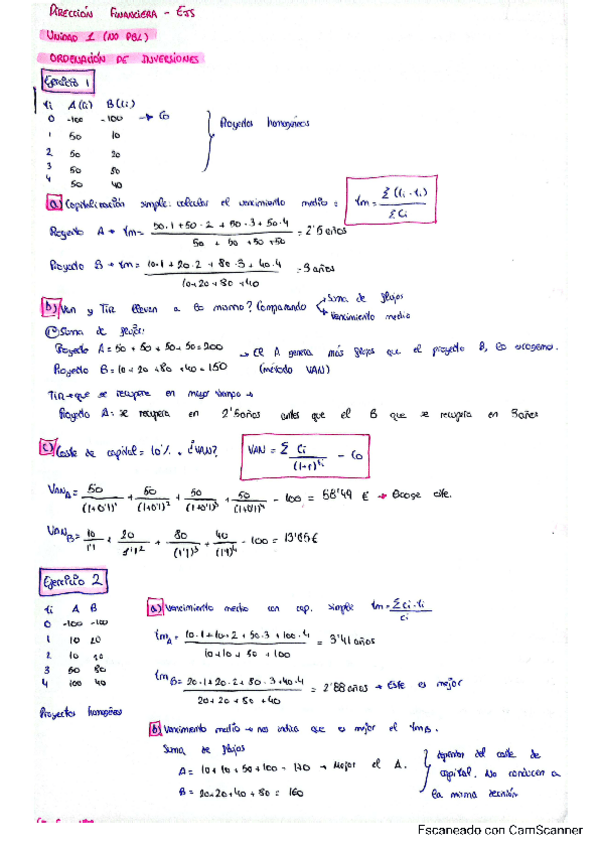 DIRECCIÓN FINANCIERA - EJS
UNIDAD 1 (NO PBL)
ORDENACIÓN DE INVERSIONES
Ejercicio 1
ti A(Ci) B(Ci)
0 -100 -100 → Co
1 50 10
2 50 20
3 50 80
4 50 40
Proyectos homogéneos
a) Capitalización simple: calcular el vencimiento medio: tm = Σ(Ci·ti) / ΣCi
Proyecto A → tm = 50·1+50·2+50·3+50·4 / 50+50+50+50 = 2'5 años
Proyecto B → tm = 10·1+20·2+80·3+40·4 / 10+20+80+40 = 3 años
b) Van y Tir llevan a lo mismo? Comparando
Suma de flujos
Vencimiento medio
Suma de flujos:
Proyecto A = 50+50+50+50 = 200
Proyecto B = 10+20+80+40 = 150
→ El A genera más flujos que el proyecto B, lo escogemos.
(método VAN)
TIR → que se recupere en mejor tiempo →
Proyecto A: se recupera en 2'5 años antes que el B que se recupera en 3 años
c) Coste de capital = 10%. ¿VAN?
VAN = Σ Ci / (1+r)^ti - Co
VAN A = 50/(1+0'1)^1 + 50/(1+0'1)^2 + 50/(1+0'1)^3 + 50/(1+0'1)^4 - 100 = 58'49 € → Escoge este.
VAN B = 10/1'1 + 20/(1'1)^2 + 80/(1'1)^3 + 40/(1'1)^4 - 100 = 13'05€
Ejercicio 2
ti A B
0 -100 -100
1 10 20
2 10
3 50 80
4 100 40
Proyectos homogéneos
a) Vencimiento medio con cap. simple tm = ΣCi·ti / Ci
tm A = 10·1+10·2+50·3+100·4 / 10+10+50+100 = 3'41 años
tm B = 20·1+20·2+80·3+40·4 / 20+20+80+40 = 2'88 años → Este es mejor
b) Vencimiento medio → nos indica que es mejor el tm B.
Suma de flujos
A = 10+10+50+100 = 170 → Mejor el A.
B = 20+20+40+80 = 160
del coste de
capital. No conducen a
la misma decisión
Escaneado con CamScanner